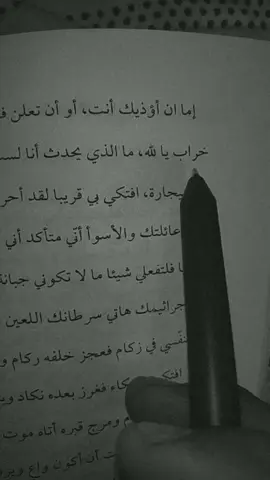 إما ان أؤذيك أنت، أو أن تعلن
خراب يا لله، ما الذي يحدث أنا لست
سيجارة، افتكي بي قريبا لقد أحر
عائلتك والأسوأ أنّي متأكد أني
فلتفعلي شيئا ما لا تكوني جبانة
جراثيمك هاتي سرطانك اللعين
في زكام فعجز خلفه ركام و
فغرز بعده نكاد
ومرج قبره أتاه موت
أن أكون واع